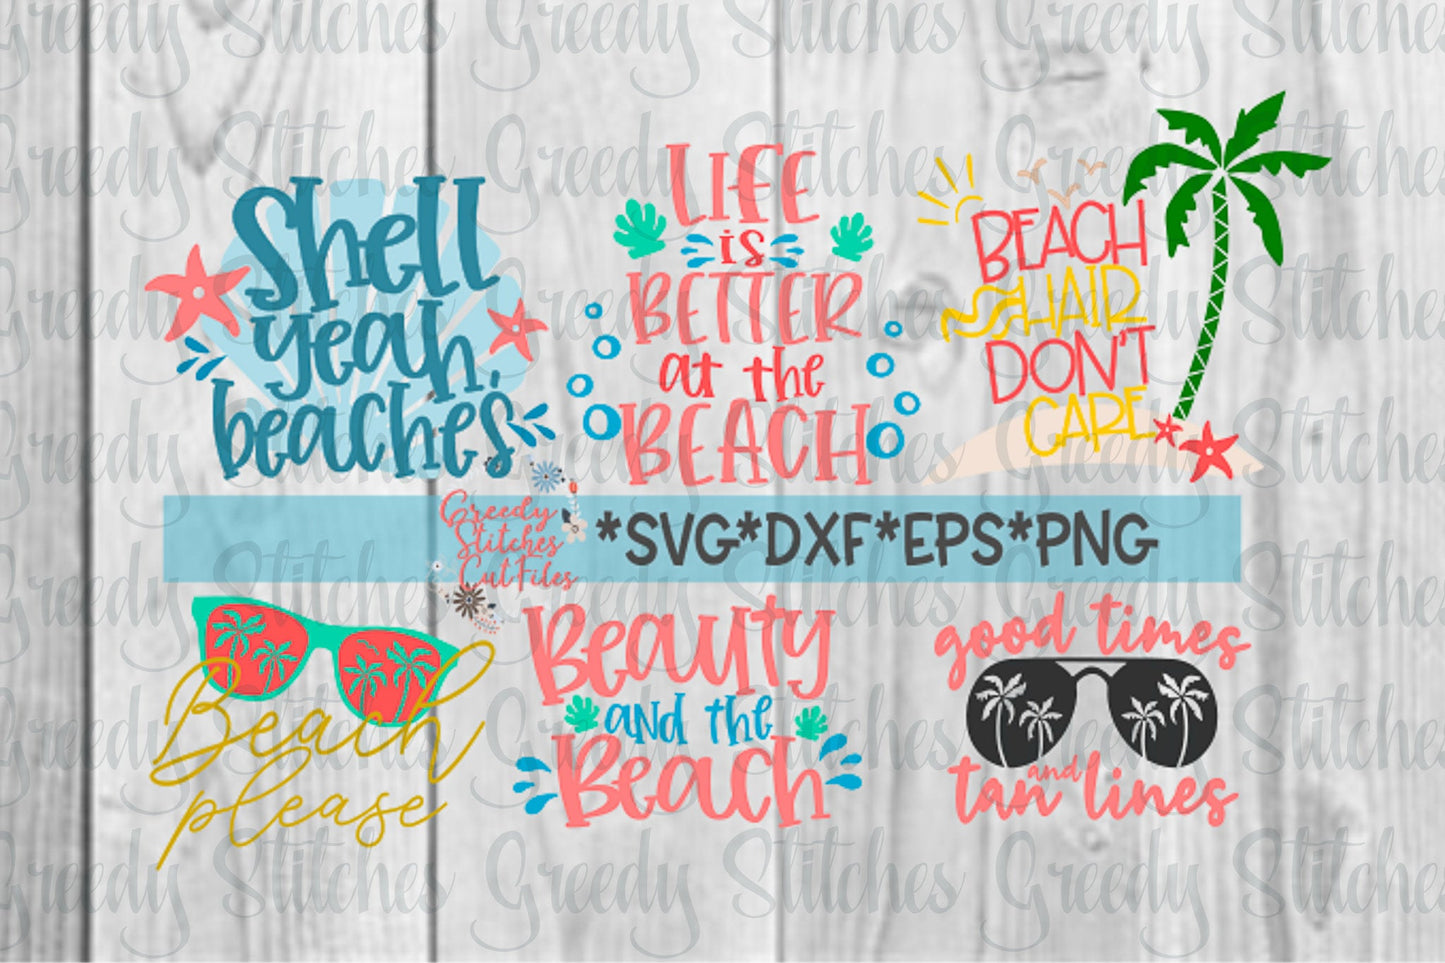 Shell
yeah,
beaches.
LIFE
is
BETTER
at the
BEACH
BEACH
HAIR
DON'T
CARE
Greedy
Stitches
Cut Files
*SVG*DXF*EPS*PNG
Beach
please
Beauty
and the
Beach
good times
and
tan lines
Greedy Stitches Greedy Stitches Greedy Stitches